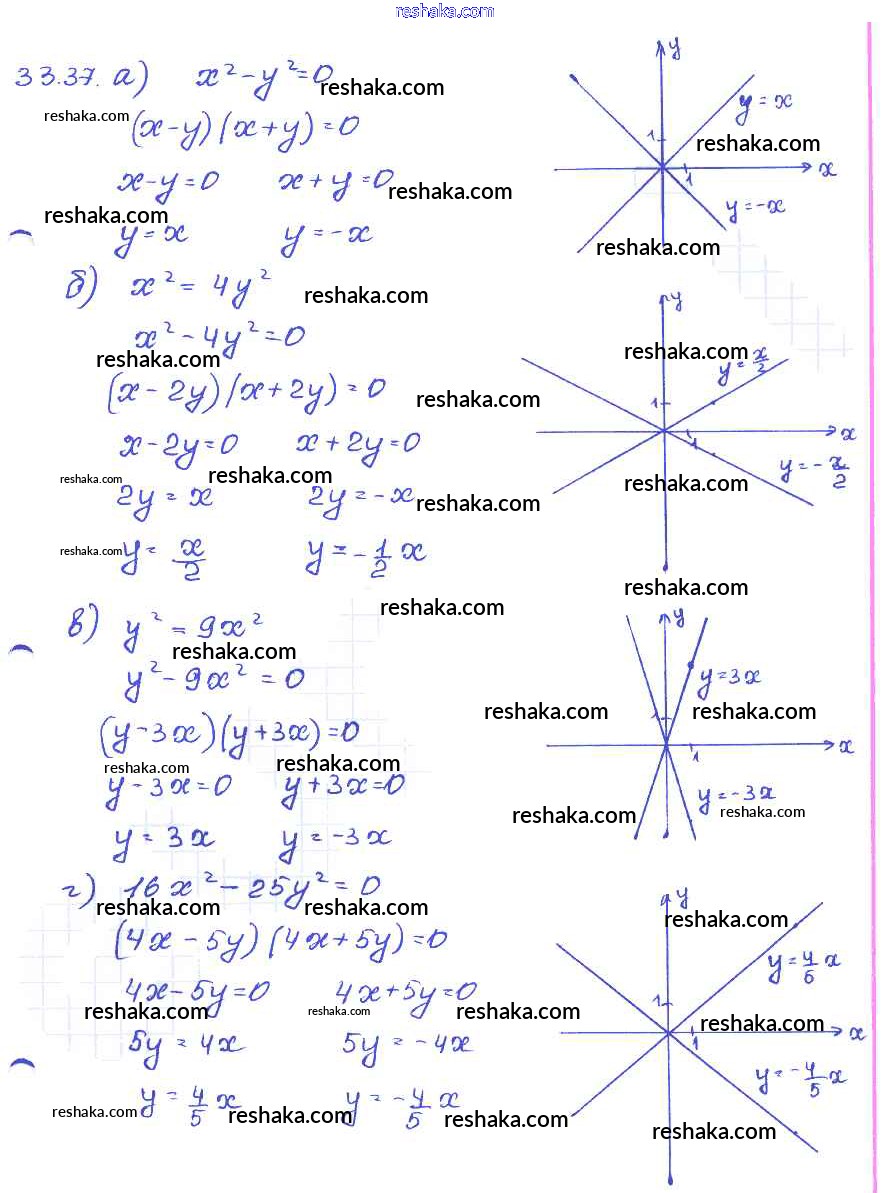 reshaka.com
33.37. а) x² - y² = 0
reshaka.com
reshaka.com
(x - y)(x + y) = 0
x - y = 0 x + y = 0
reshaka.com
reshaka.com
y = x y = -x
y
y = x
reshaka.com
1
x
1
y = -x
reshaka.com
б) x² = 4y²
reshaka.com
x² - 4y² = 0
reshaka.com
(x - 2y)(x + 2y) = 0
reshaka.com
x - 2y = 0 x + 2y = 0
reshaka.com
reshaka.com
2y = x 2y = -x
reshaka.com
reshaka.com
y = x/2 y = -1/2 x
y
reshaka.com
y = x/2
1
x
1
y = -x/2
reshaka.com
reshaka.com
reshaka.com
в) y² = 9x²
reshaka.com
y² - 9x² = 0
(y - 3x)(y + 3x) = 0
reshaka.com
reshaka.com
y - 3x = 0 y + 3x = 0
y = 3x y = -3x
y
y = 3x
reshaka.com
reshaka.com
1
x
1
y = -3x
reshaka.com
reshaka.com
г) 16x² - 25y² = 0
reshaka.com
reshaka.com
(4x - 5y)(4x + 5y) = 0
4x - 5y = 0 4x + 5y = 0
reshaka.com
reshaka.com
reshaka.com
5y = 4x 5y = -4x
y = 4/5 x y = -4/5 x
reshaka.com
reshaka.com
reshaka.com
y
reshaka.com
y = 4/5 x
1
reshaka.com
x
1
y = -4/5 x
reshaka.com